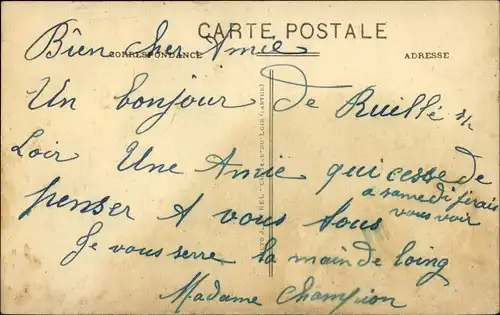 CARTE POSTALE
Bien cher Amie
CORRESPONDANCE
ADRESSE
Un bonjour de Ruillé s/r
Loir Une Amie qui cesse de
penser A vous tous
a samedi j'irais
vous voir
Je vous serre la main de loing
Madame Champion